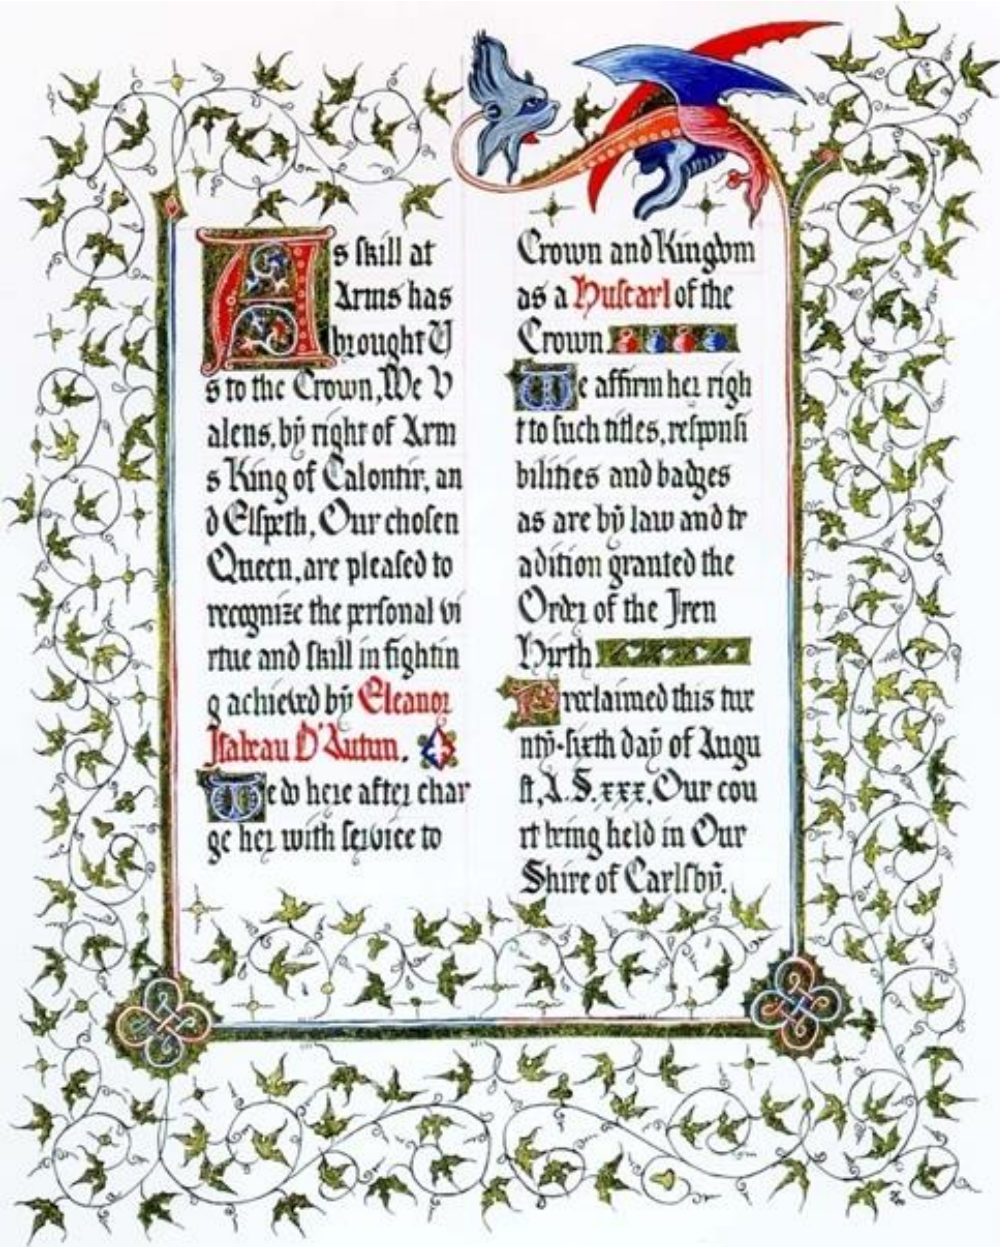 As skill at
Arms has
brought U
s to the Crown, We V
alens, by right of Arm
s King of Calontir, an
d Elspeth, Our chosen
Queen, are pleased to
recognize the personal vi
rtue and skill in fightin
g achieved by Eleanor
Isabeau D'Autun.
We do here after char
ge her with service to
Crown and Kingdom
as a Huscarl of the
Crown
We affirm her righ
t to such titles, responsi
bilities and badges
as are by law and tr
adition granted the
Order of the Iren
Hirth
Proclaimed this twe
nty-sixth day of Augu
st, A.S. xxx. Our cou
rt being held in Our
Shire of Carlsby.